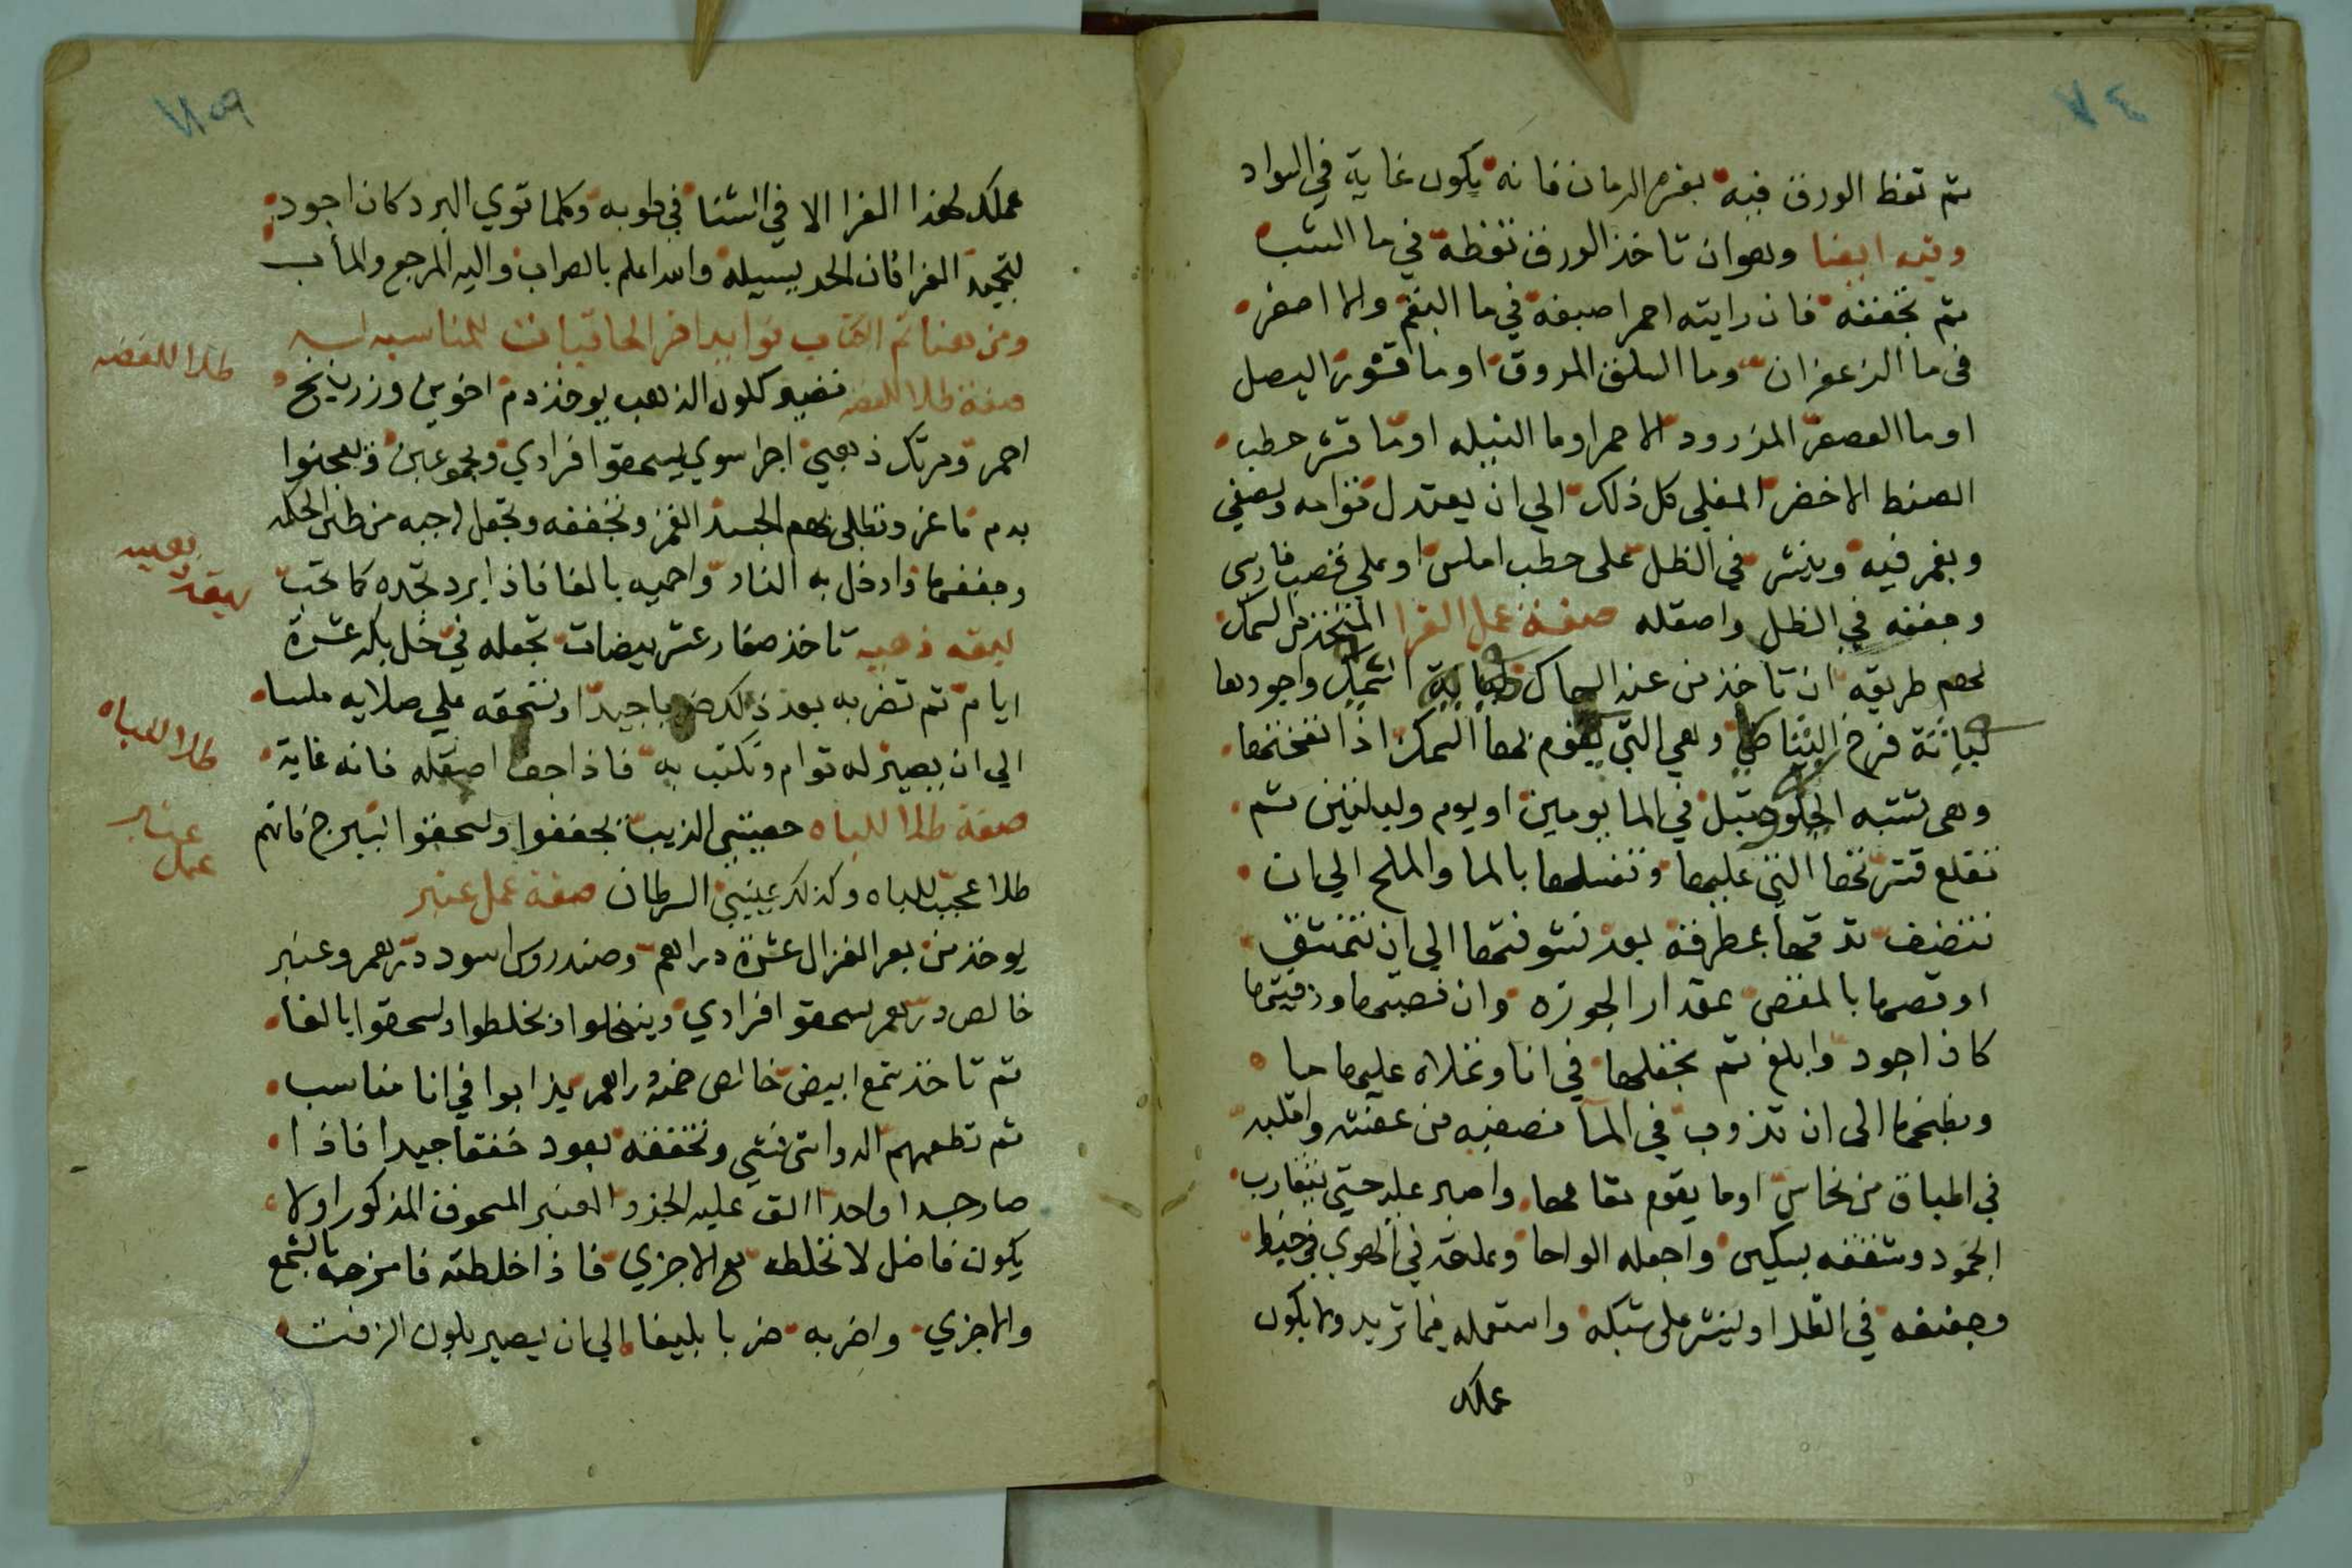 ثم تغط الورق فيه بقشر الرمان فانه يكون غاية في السواد
وفيه ايضا وهوان تاخذ الورق تغطه في ما الشب
ثم تجففه فان رايته احمر اصبغه في ما البقم والا اصفر
في ما الزعفران وما السلق المروق او ما قشور البصل
او ما العصفر المزرود الاحمر او ما النيله او ما قشر حطب
الصنط الاخضر المغلى كل ذلك الي ان يعتدل قوامه ويصفي
ويغمر فيه وينشر في الظل على حطب املس او على قصب فارسى
وجففه في الظل واصقله صفة عمل الغرا المتخذ من السمك
لهم طريقه ان تاخذ من عند السماك واجودها
فرخ وهي التي يقوم بها السمك اذا نفختها
وهي تشبه الجلود تبل في الما يومين او يوم وليلتين ثم
تقلع قشرتها التي عليها وتغسلها بالما والملح الي ان
تنضف تدقها بمطرقة بعد الي ان
او تقصها بالمقص بمقدار الجوزه وان قصيتها ودقيتها
كان اجود وابلغ ثم تجعلها في انا وتملاه عليها ما
وتطبخها الى ان تذوب في الما تصفيه من واقلبه
في اطباق من نحاس او ما يقوم مقامها واصبر عليه حتي يتقارب
الجمود وشققه بسكين واجعله الواحا وعلقه في الهوي في خيط
وجففه في الظل او لينشر على شبكه واستعمله فيما تريد ولا يكون
عملك
عملك لهذا الغرا الا في الشتا في طوبه وكلما قوي البرد كان اجود
لتجميد الغرا فان الحر يسيله والله اعلم بالصواب واليه المرجع والمأب
ومن هنا تم الكتاب فوايد اخر الحاقيات للمناسبه
صفة طلا للفضه تصير كلون الذهب يوخذ دم اخوين وزرنيخ
احمر ومرتك ذهبي اجزا سوي يسحقوا فرادي ومجموعين وتعجنوا
بدم ماعز وتطلى بهم الجسد القمر وتجففه وتجعل له جبه من طين الحكمه
وجففها وادخل به النار واحميه بالغا فاذا برد تجده كما تحب
ليقه ذهبيه تاخذ صفار عشر بيضات تجعله في خل بكر عشرة
ايام ثم تضربه بعد ذلك ضربا جيدا وتسحقه علي صلايه ملسا
الي ان يصير له قوام وتكتب به فاذا جف اصقله فانه غاية
صفة طلا للباه خصيتي الذيب يجففوا ويسحقوا بشيرج فانهم
طلا عجيب للباه وكذلك عينين السرطان صفة عمل عنبر
يوخذ من بعر الغزال عشرة دراهم وصندروس اسود درهم وعنبر
خالص درهم يسحقو افرادي وينخلوا ويخلطوا ويسحقوا بالغا
ثم تاخذ شمع ابيض خالص خمسة دراهم يذابوا في انا مناسب
ثم تطعمهم الدوا شي فشي وتخفقه بعود خفقا جيدا فاذا
صار جسدا واحدا الق عليه الجزو العنبر المسحوق المذكور اولا
يكون فاضل لا تخلطه مع الاجزي فاذا خلطته فامزجه بالشمع
والاجزي واضربه ضربا بليغا الي ان يصير بلون الزفت
طلا للفضه
ليقه
ذهبيه
طلا للباه
عنبر
عمل